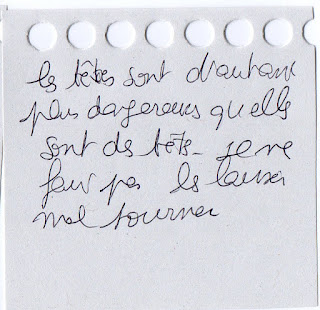 les têtes sont d'autant
plus dangereuses qu'elle
sont des têtes - ne
faut pas les laisser
mal tourner